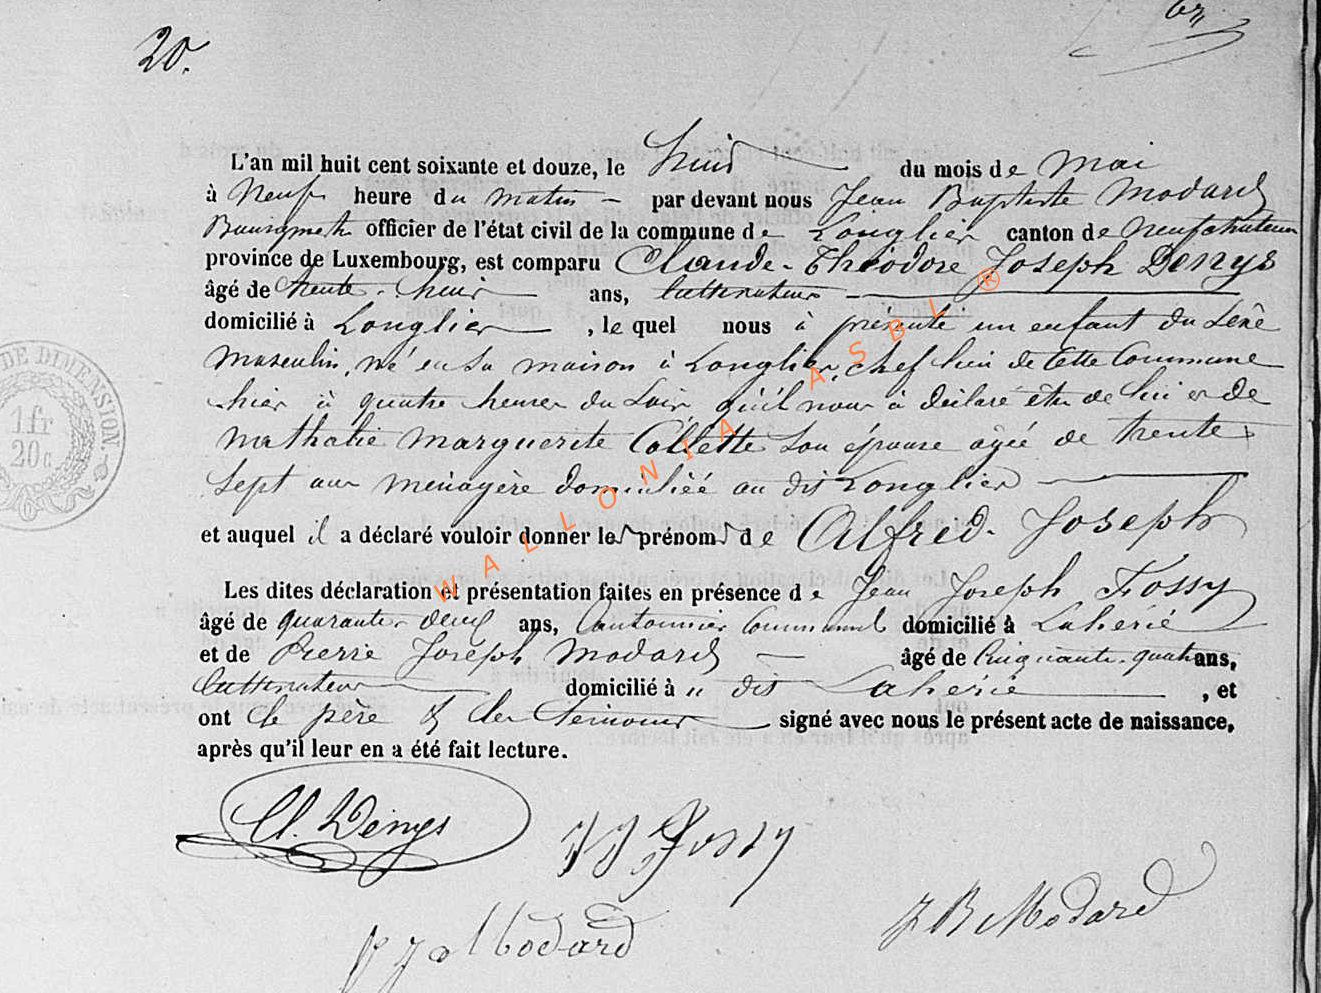 20.
L'an mil huit cent soixante et douze, le huit du mois de mai
à neuf heure du matin par devant nous Jean Baptiste Modard
Bourgmestre officier de l'état civil de la commune de Longlier canton de neufchateau
province de Luxembourg, est comparu Claude-Théodore Joseph Denys
âgé de trente-huit ans, cultivateur
domicilié à Longlier, le quel nous à présenté un enfant du sexe
masculin, né en sa maison à Longlier, chef lieu de cette commune
hier à quatre heures du soir qu'il nous à déclaré être de lui et de
mathalie marguerite Collette son épouse agée de trente
sept ans ménagère domiciliéé au dit Longlier
et auquel il a déclaré vouloir donner les prénoms de Alfred-Joseph
Les dites déclaration et présentation faites en présence de Jean Joseph Fossy
âgé de quarante-deux ans, Cantonnier Communal domicilié à Lahérié
et de Pierre Joseph Modard âgé de Cinquante-quatre ans,
cultivateur domicilié à " dit Lahérié, et
ont le père & les témoins signé avec nous le présent acte de naissance,
après qu'il leur en a été fait lecture.
Cl. Denys
JJ Fossy
P J Modard
J B Modard
DE DIMENSION.
1 fr
20 c
WALLONIA ASBL ®